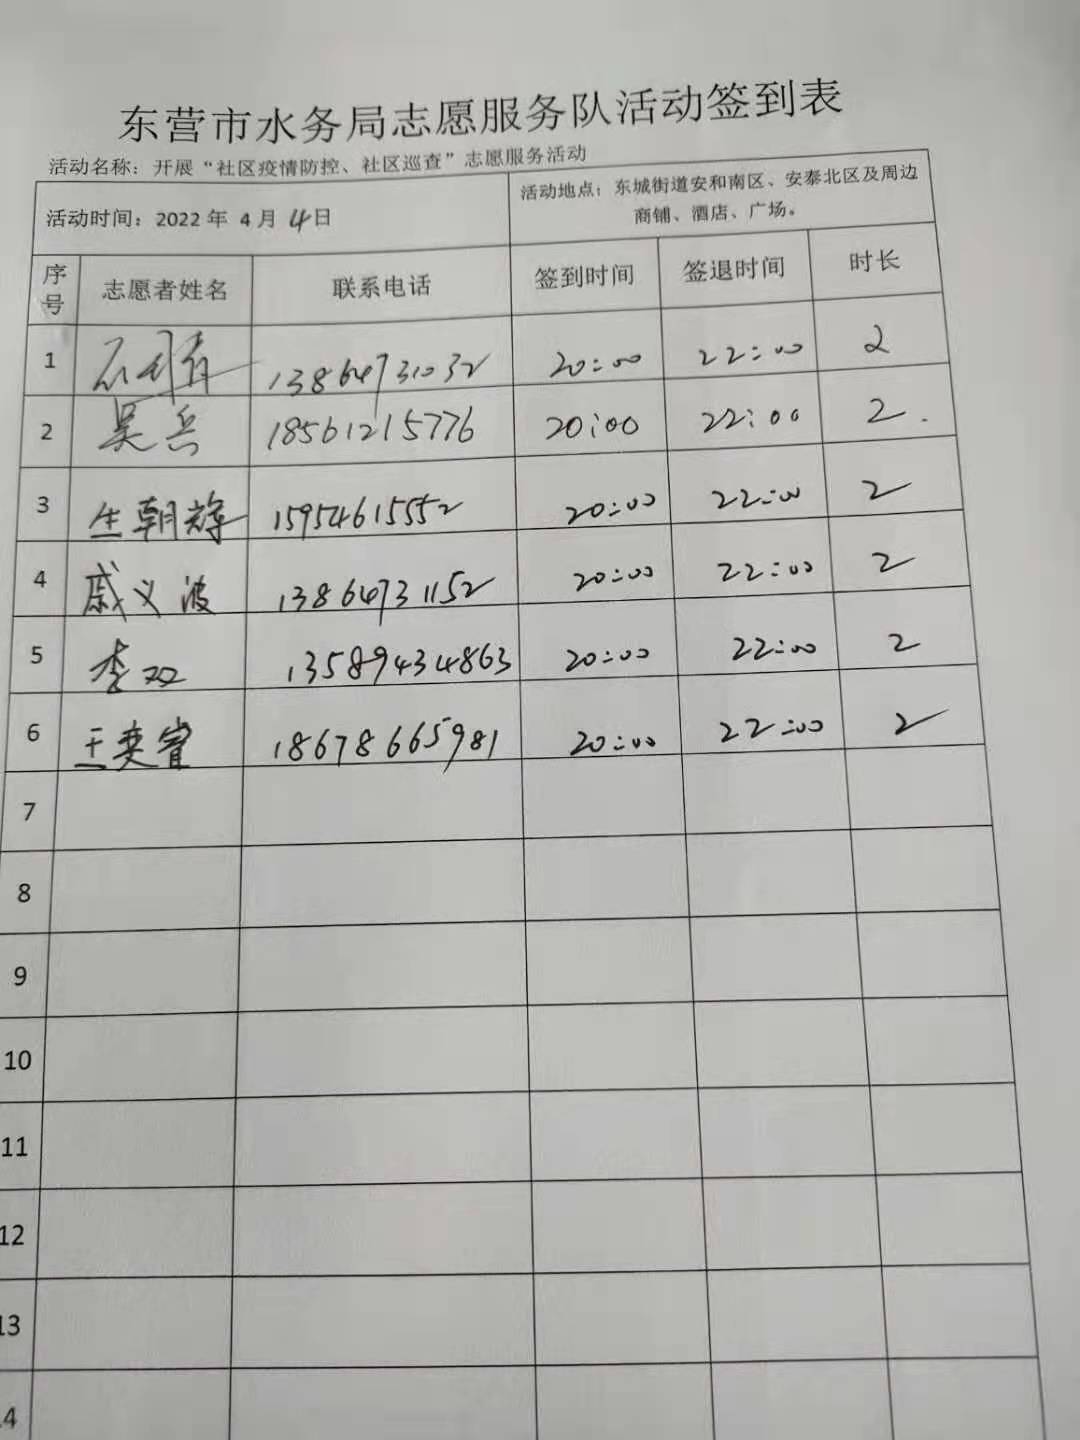 东营市水务局志愿服务队活动签到表
活动名称：开展“社区疫情防控、社区巡查”志愿服务活动
活动时间：2022 年 4 月 4日 活动地点：东城街道安和南区、安泰北区及周边
商铺、酒店、广场。
序号 志愿者姓名 联系电话 签到时间 签退时间 时长
1 13864731032 20:00 22:00 2
2 吴兵 18561215776 20:00 22:00 2.
3 生朝辉 15954615552 20:00 22:00 2
4 戚义波 13864731152 20:00 22:00 2
5 李双 13589434863 20:00 22:00 2
6 王奕睿 18678665981 20:00 22:00 2
7
8
9
10
11
12
13
14